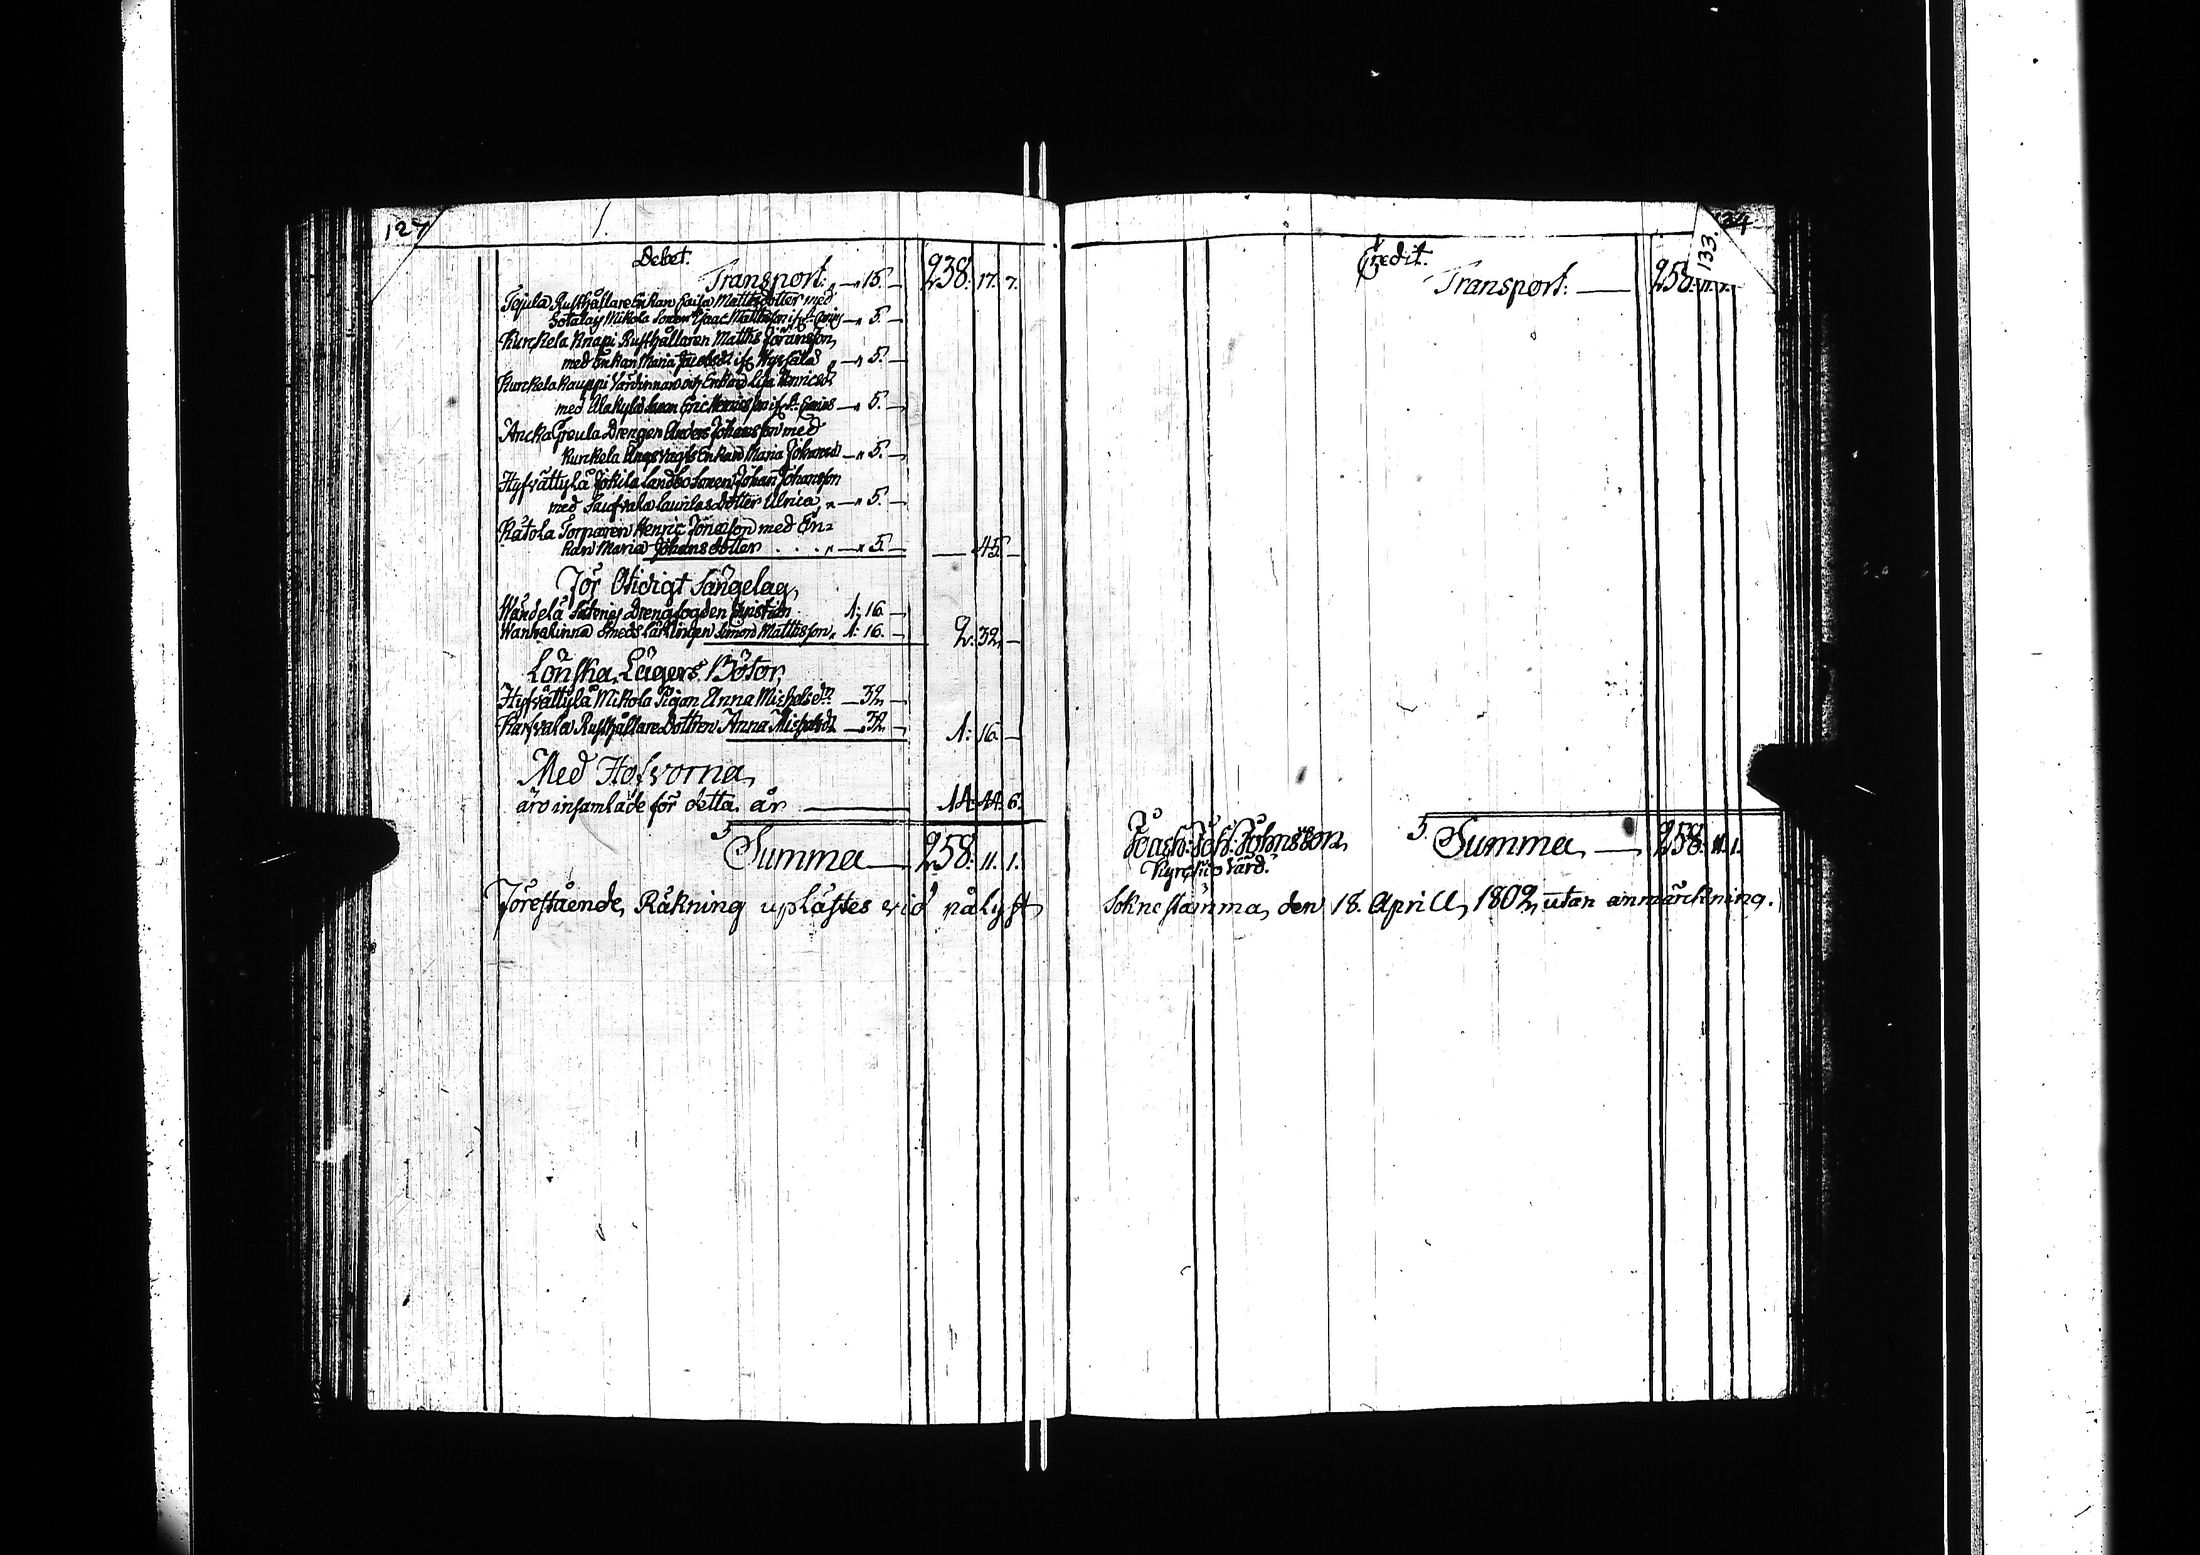 127
Debet.
Transport. „ — „ 15. — 238. 17. 7.
Tejula Rusthållare Enkan Caisa Matthsdotter med
Sotalay Mikola Sonen Isaac Mattsson i — „ 5. —
Kurckela Knapi Rusthållaren Matths Jöransson,
med Enkan Maria — „ 5. —
Kurckela Kauppi Värdinnan och Enkan Lisa Henricsdr
med Alakylä Sonen Eric Henricsson i — „ 5. —
Ancka Greula Drengen Anders Johansson med
Kurckela Enkan Maria Johansdr — „ 5. —
Hyfvättylä Jokila Landbo Sonen Johan Johansson
med Launlas Dotter Ulrica, „ — „ 5. —
Kätola Torparen Henric Jonasson med En=
kan Maria Johansdotter . . . „ — „ 5. — — 45. —
För Otidigt Sängelag,
Wändelä Säteris Drengfogden Christian 1: 16. —
Wanhalinna Smeds Lärlingen Simon Mattsson, 1: 16. — 2: 32. —
Lönska Lägers Böter,
Hyfvättylä Mikola Pigan Anna Michelsdr — 32. —
Karfvala Rusthållare Dottren Anna Michelsdr — 32. — 1: 16. —
Med Håfvorna,
äro insamlade för detta år — 14: 44. 6.
Summa — 258. 11. 1.
Förestående, Räkning uplästes vid pålyst
133.
Credit.
Transport. — 258.
Joh: Johnsson,
Kyrckio Värd.
Summa, — 258. 11. 1.
Sokne stämma, den 18. Aprill, 1802, utan anmärckning.